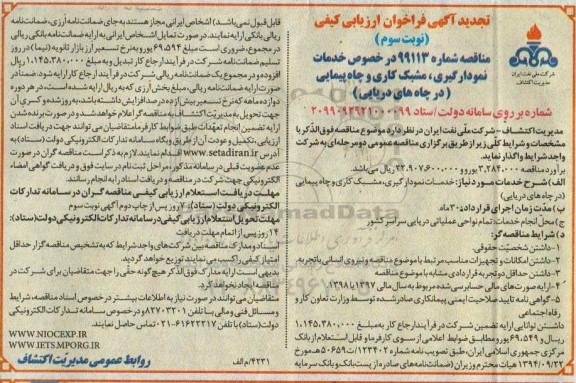 تجدید آگهی فراخوان ارزیابی کیفی
(نوبت سوم)
مناقصه شماره ۹۹۱۱۳ در خصوص خدمات
نمودارگیری، مشبک کاری و چاه پیمایی
(در چاه های دریایی)
شرکت ملی نفت ایران
مدیریت اکتشاف
شماره بر روی سامانه دولت/ستاد ۲۰۹۹۰۹۲۹۲۱۰۰۰۰۹۹
مدیریت اکتشاف - شرکت ملّی نفت ایران در نظر دارد موضوع مناقصه فوق الذکر با
مشخصات و شرایط کلّی زیر از طریق برگزاری مناقصه عمومی دو مرحله ای به شرکت
واجد شرایط واگذار نماید.
برآورد مناقصه ۳,۲۸۴,۰۰۰ یورو و ۲۲,۹۰۷,۶۰۰,۰۰۰ ریال می باشد.
الف) شرح خدمات مورد نیاز: خدمات نمودارگیری، مشبک کاری و چاه پیمایی
(در چاه های دریایی)
ب) مدت زمان اجرای قرارداد: ۲۰ ماه.
ج) محلّ انجام خدمات: تمام نواحی عملیاتی دریایی سراسر کشور
د) شرایط مناقصه گر:
۱- داشتن شخصیّت حقوقی
۲- داشتن امکانات و تجهیزات مناسب مرتبط با موضوع مناقصه و نیروی انسانی با تجربه.
۳- داشتن حداقل دو تجربه قراردادی مشابه با موضوع مناقصه
۴- ارایه صورت های مالی حسابرسی شده مربوط به سال مالی ۱۳۹۷ یا ۱۳۹۸
۵- گواهی نامه تایید صلاحیت ایمنی پیمانکاری صادر شده توسط وزارت تعاون کار و
رفاه اجتماعی
داشتن توانایی ارایه تضمین شرکت در فرآیند ارجاع کار به مبلغ ۱,۱۴۵,۳۸۰,۰۰۰
ریال و ۶۹,۵۴۹ یورو مطابق ضوابط اعلامی از سوی کارفرما و قابل استفاده از بانک
مرکزی جمهوری اسلامی ایران، طبق تصویب نامه شماره ۱۲۳۴۰۲/ت۵۰۶۵۹ه مورخ
۱۳۹۴/۰۹/۲۲ هیات محترم وزیران (ضمانت نامه های صادره از پست بانک و بانک سرمایه
قابل قبول نمی باشد) اشخاص ایرانی مجاز هستند به جای ضمانت نامه ارزی، ضمانت نامه
ریالی بانکی ارایه نمایند. در صورت تمایل اشخاص ایرانی به ارایه ضمانت نامه بانکی ریالی
در مجموع، ضروری است مبلغ ۶۹,۵۹۴ یورو به نرخ تسعیر ارز بازار ثانویه (نیما) در روز
تسلیم ضمانت نامه شرکت در فرآیند ارجاع کار تبدیل و به مبلغ ۱,۱۴۵,۳۸۰,۰۰۰ ریال
افزوده و در مجموع یک ضمانت نامه ریالی شرکت در فرآیند ارجاع کار ارایه شود. ضمناً در
صورت ارایه ضمانت نامه ریالی، مبلغ بخش ارزی که به ریال ارایه شده است، در هر دوره
دوازده ماهه که نرخ تسعیر بیش از ده درصد افزایش داشته باشد، به روز شده و کسری آن
جهت تحویل به مدیریّت اکتشاف به مناقصه گر اعلام خواهد شد و در صورت برنده شدن
ارایه تضمین انجام تعهّدات طبق ضوابط کارفرما متقاضیان می توانند جهت دریافت اسناد
ارزیابی، تکمیل و عودت آن از طریق وبگاه سامانه تدارکات الکترونیکی دولت (ستاد) به
آدرس www.setadiran.ir اقدام نمایند. لازم به ذکر است مناقصه گران در صورت
عدم عضویت قبلی در سامانه مذکور، مراحل ثبت نام در سایت فوق و دریافت گواهی امضاء
الکترونیکی جهت شرکت در مناقصه و دریافت اسناد را به انجام رسانند.
مهلت دریافت استعلام ارزیابی کیفی مناقصه گران در سامانه تدارکات
الکترونیکی دولت (ستاد): ۷ روز پس از چاپ دوم آگهی نوبت سوم
مهلت تحویل استعلام ارزیابی کیفی در سامانه تدارکات الکترونیکی دولت (ستاد):
۱۴ روز پس از اتمام مهلت دریافت
اسناد و مدارک مناقصه بین شرکت های واجد شرایط که به تشخیص مناقصه گزار حداقل
امتیاز کیفی را کسب می نمایند توزیع خواهد گردید.
بدیهی است ارایه مدارک فوق الذکر هیچ گونه حقّی را جهت متقاضیان برای شرکت در
مناقصه ایجاد نخواهد کرد.
متقاضیان می توانند در صورت نیاز به اطلاعات بیشتر در خصوص اسناد مناقصه، شرایط
و مسائل فنی و مالی با تلفن ۸۲۷۰۳۲۰۱ و در خصوص سامانه تدارکات الکترونیکی
دولت (ستاد) با تلفن ۶۱۶۲۲۲۱۷-۰۲۱ تماس حاصل نمایند.
WWW.NIOCEXP.IR
WWW.IETS.MPORG.IR
۴۲۳۱/م الف
روابط عمومی مدیریّت اکتشاف